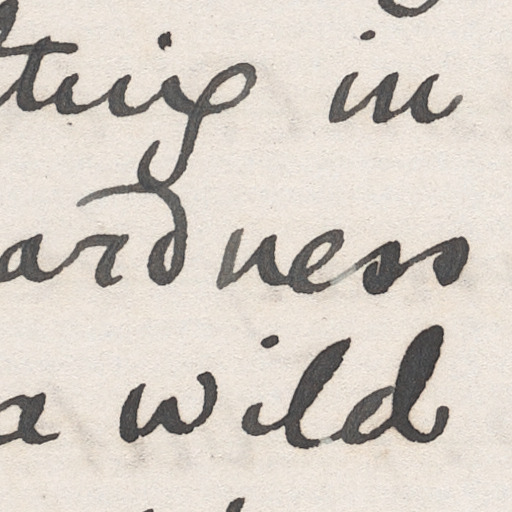 ting in
ardness
a wild